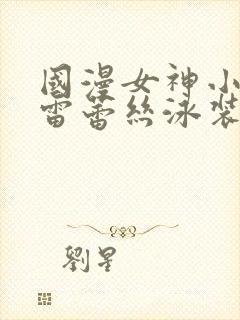 國漫女神小
雷蕾絲泳裝
劉星